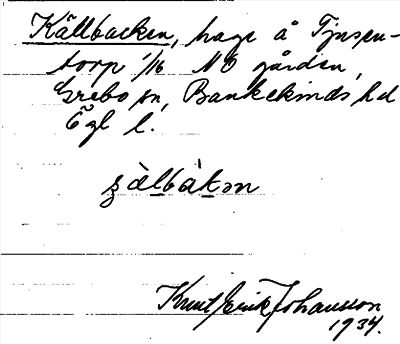 Källbacken, hage å Tjusen-
torp 1/16 NO gården,
Grebo sn, Bankekinds hd
Ögl l.
Knut Erik Johansson
1934.